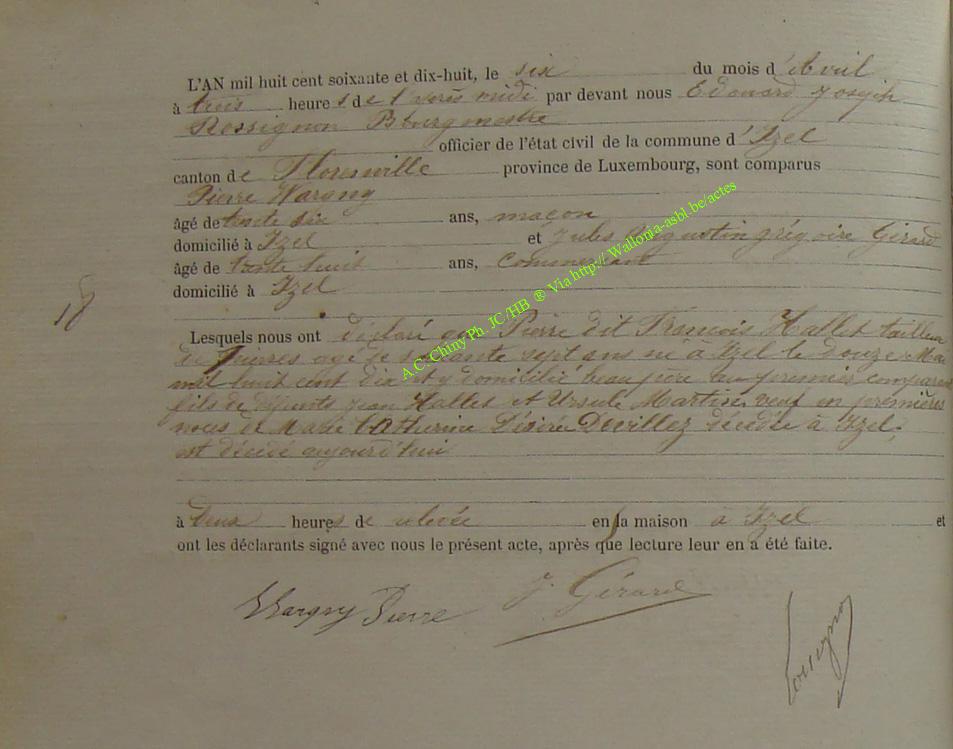 L'AN mil huit cent soixante et dix-huit, le six du mois d'Avril
à trois heures de l'après midi par devant nous Edouard Joseph
Rossignon Bourgmestre
officier de l'état civil de la commune d'Izel
canton de Florenville province de Luxembourg, sont comparus
Pierre Wargny
âgé de trente six ans, maçon
domicilié à Izel et Jules Augustin grégoire Gérard
âgé de trente huit ans, Commerçant
domicilié à Izel
18
Lesquels nous ont déclaré que Pierre dit François Hallet tailleur
de pierres agé de soixante sept ans né à Izel le douze Mai
mil huit cent dix et y domicilié beau père au premier comparant
fils de défunts Jean Hallet et Ursule Martin, veuf en premières
noces de Marie Catherine Désirée Devillez décédée à Izel,
est décédé aujourd'hui
à deux heures de relevée en la maison à Izel et
ont les déclarants signé avec nous le présent acte, après que lecture leur en a été faite.
Wargny Pierre J. Gérard
Rossignon
A.C. Chiny Ph. JC/HB ® Via http://Wallonia-asbl.be/actes